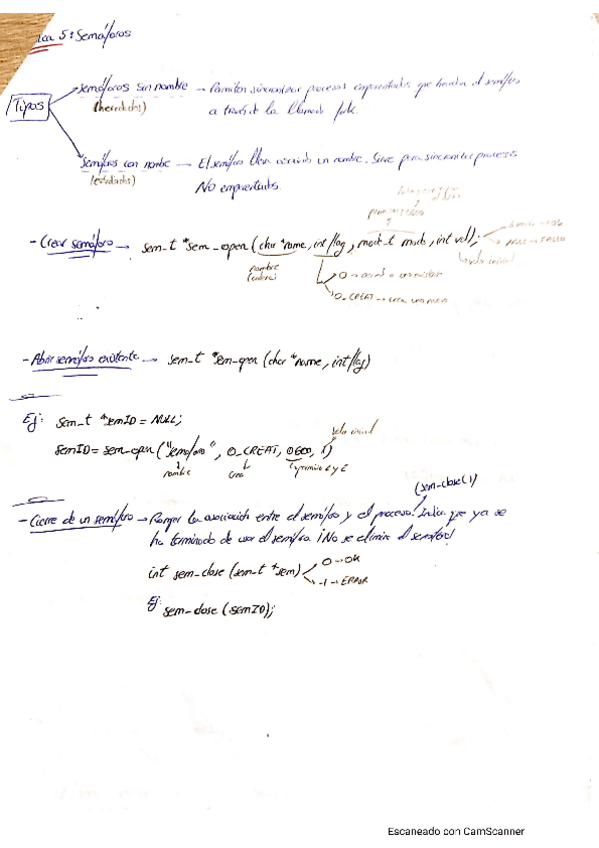 ica 5: Semáforos
Tipos
semáforos sin nombre → Permiten sincronizar procesos emparentados que heredan el semáforo
(heredados) a través de la llamada fork.
Semáforos con nombre — El semáforo lleva asociado un nombre. Sirve para sincronizar procesos
No emparentados.
- Crear semáforo → sem_t *sem_open (char *name, int flag, mode_t mode, int val);
nombre
O_CREAT → crea
valor inicial
- Abrir semáforo existente → sem_t *sem_open (char *name, int flag)
Ej: sem_t *semID = NULL;
valor inicial
semID = sem_open ("semaforo", O_CREAT, 0600, 1)
nombre crea permiso L y E
(sem_close())
- Cierre de un semáforo → Romper la asociación entre el semáforo y el proceso. Indica que ya se
ha terminado de usar el semáforo. ¡No se elimina el semáforo!
int sem_close (sem_t *sem) 0 → OK
-1 → ERROR
Ej: sem_close (semID);
Escaneado con CamScanner